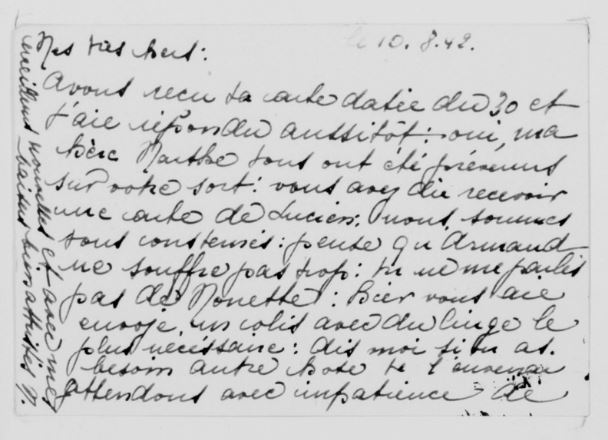 le 10. 8.42.
Mes très chers:
Avons recu ta carte datée du 30 et
t'aie répondu aussitôt: oui, ma
chère Marthe tous ont été prévenus
sur votre sort: vous avez du recevoir
une carte de Lucien: nous sommes
tous consternés: pense qu'Armand
ne souffre pas trop: tu ne me parles
pas de Nonette: hier vous aie
envoje, un colis avec du linge le
plus nécéssaire: dis moi si tu as
besoin autre chose te l'enverrai
attendons avec impatience de
meilleurs nouvelles et avec mes
baisers bien attristés